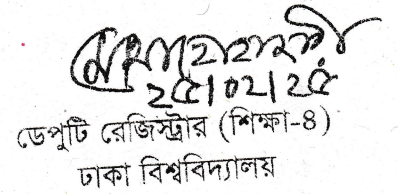 ২৫/০২/২৫
ডেপুটি রেজিস্ট্রার (শিক্ষা-৪)
ঢাকা বিশ্ববিদ্যালয়